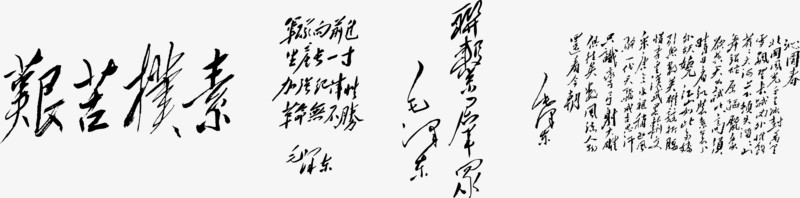 艱苦樸素
軍隊向前進
生產長一寸
加强紀律性
革命無不勝
毛澤東
聯繫羣眾
毛澤東
沁園春
北國風光千里冰封萬里
雪飄望長城內外惟餘
莽莽大河上下頓失滔滔山
舞銀蛇原馳蠟象
欲與天公試比高須
晴日看紅裝素裹分
外妖嬈江山如此多嬌
引無數英雄競折腰
惜秦皇漢武略輸文
采唐宗宋祖稍遜風
騷一代天驕成吉思汗
只識彎弓射大鵰
俱往矣數風流人物
還看今朝
毛澤東